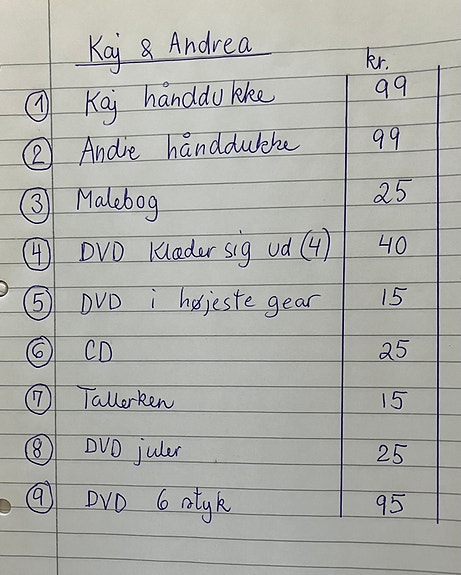 Kaj & Andrea
kr.
1 Kaj hånddukke 99
2 Andre hånddukke 99
3 Malebog 25
4 DVD Klæder sig ud (4) 40
5 DVD i højeste gear 15
6 CD 25
7 Tallerken 15
8 DVD juler 25
9 DVD 6 styk 95